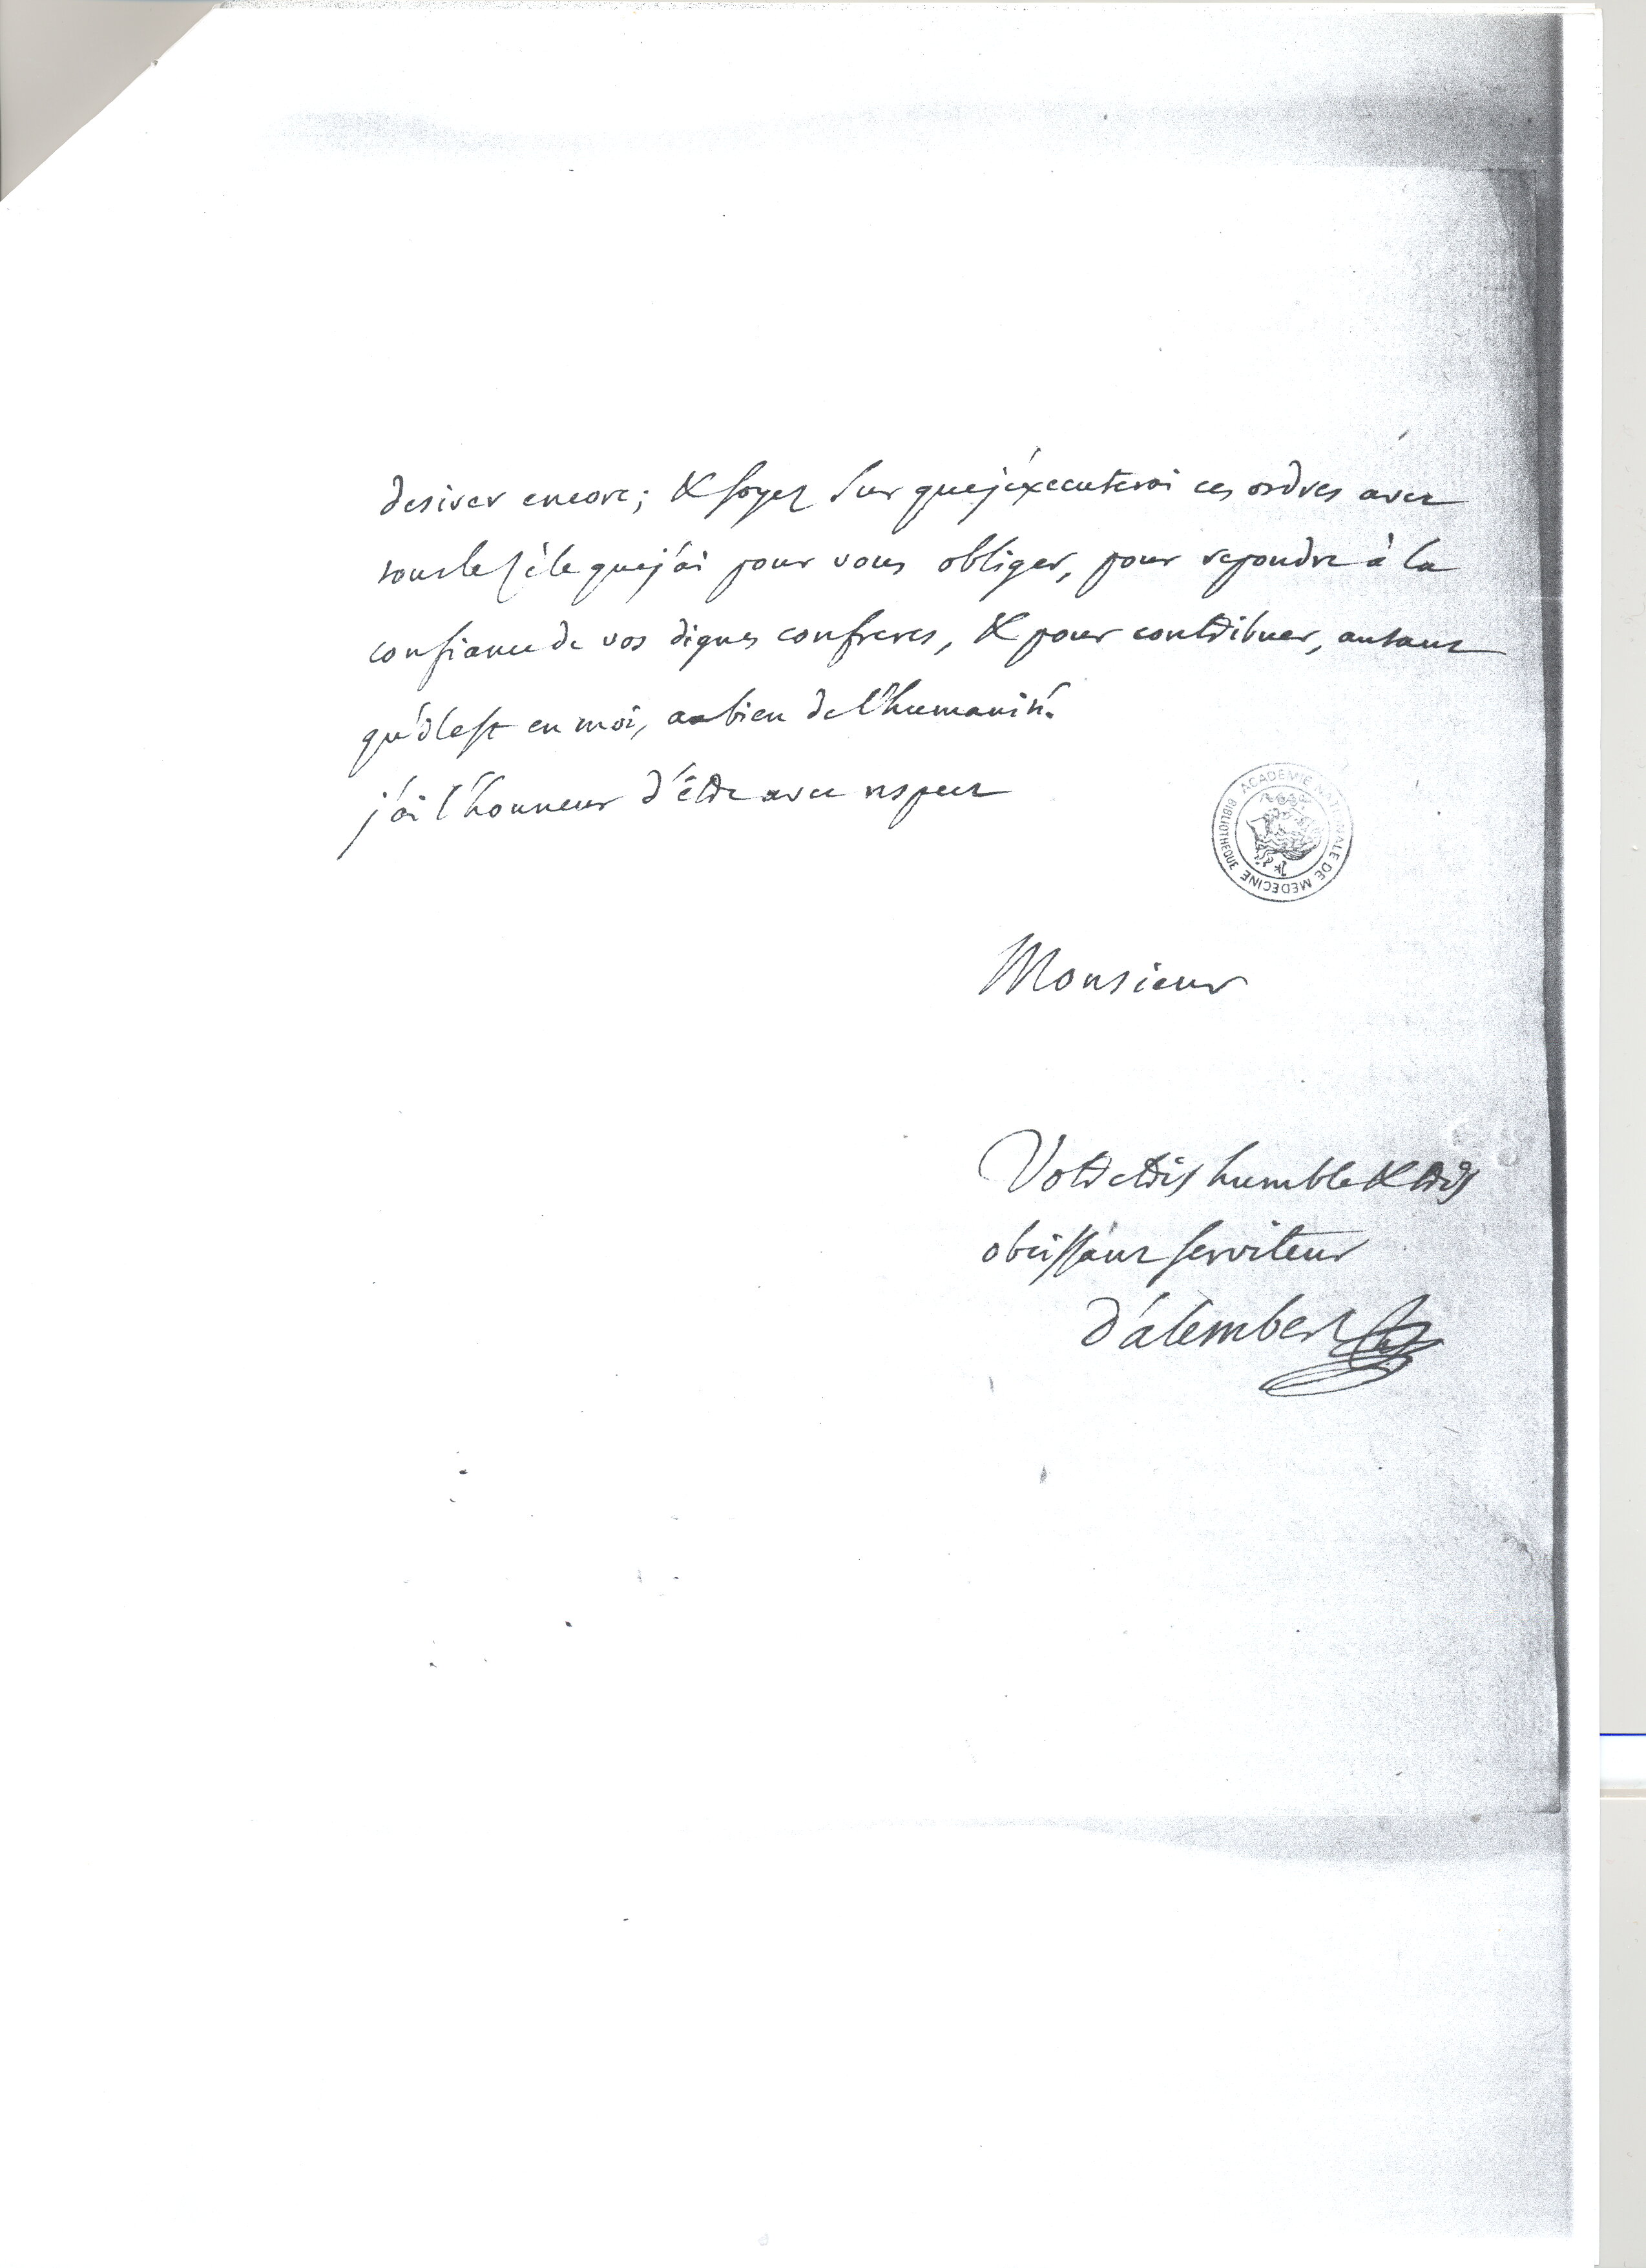 desirer encore; & soyez sur que j'éxecuterai ces ordres avec
tout le zèle que j'ai pour vous obliger, pour repondre à la
confiance de vos dignes confreres, & pour contribuer, autant
qu'il est en moi, au bien de l'humanité.
j'ai l'honneur d'être avec respect
ACADEMIE NATIONALE DE MEDECINE
BIBLIOTHEQUE
Monsieur
Votre très humble & très
obeissant serviteur
d'alembert